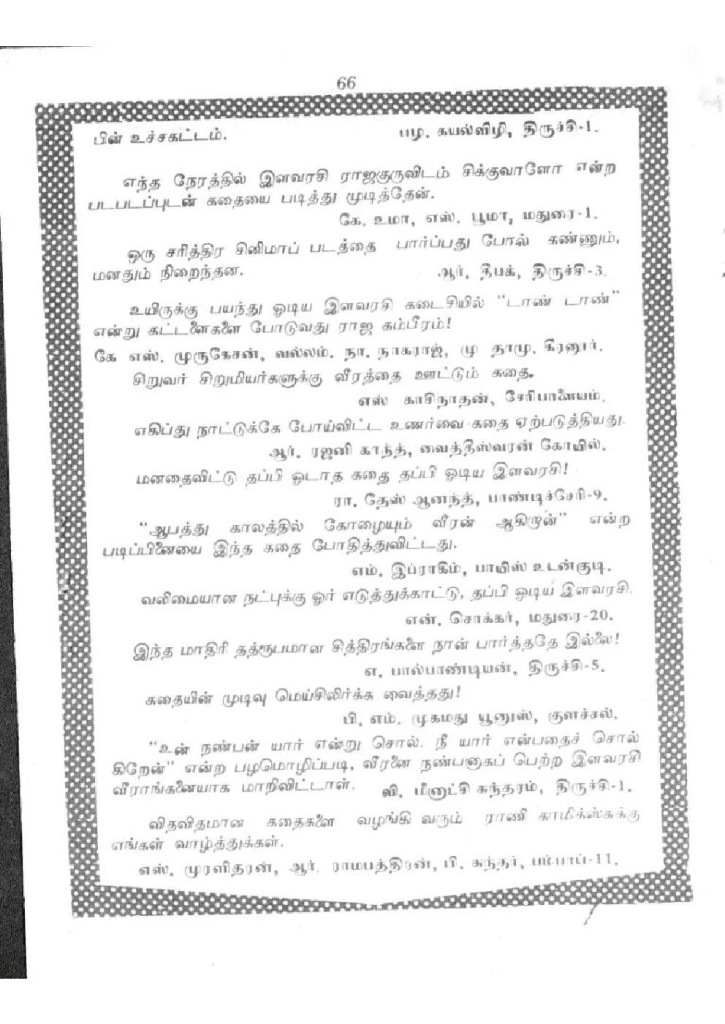 66
பின் உச்சகட்டம். பழ. கயல்விழி, திருச்சி-1.
எந்த நேரத்தில் இளவரசி ராஜகுருவிடம் சிக்குவாளோ என்ற
படபடப்புடன் கதையை படித்து முடித்தேன்.
கே. உமா, எஸ். பூமா, மதுரை-1.
ஒரு சரித்திர சினிமாப் படத்தை பார்ப்பது போல் கண்ணும்,
மனதும் நிறைந்தன. ஆர். தீபக், திருச்சி-3.
உயிருக்கு பயந்து ஓடிய இளவரசி கடைசியில் "டாண் டாண்"
என்று கட்டளைகளை போடுவது ராஜ கம்பீரம்!
கே எஸ். முருகேசன், வல்லம். நா. நாகராஜ், மு தாமு. கீரனூர்.
சிறுவர் சிறுமியர்களுக்கு வீரத்தை ஊட்டும் கதை.
எஸ் காசிநாதன், சேரிபாளையம்.
எகிப்து நாட்டுக்கே போய்விட்ட உணர்வை கதை ஏற்படுத்தியது.
ஆர். ரஜனி காந்த், வைத்தீஸ்வரன் கோயில்.
மனதைவிட்டு தப்பி ஓடாத கதை தப்பி ஓடிய இளவரசி!
ரா. தேஸ் ஆனந்த், பாண்டிச்சேரி-9.
"ஆபத்து காலத்தில் கோழையும் வீரன் ஆகிறான்" என்ற
படிப்பினையை இந்த கதை போதித்துவிட்டது.
எம். இப்ராகிம், பாயிஸ் உடன்குடி.
வலிமையான நட்புக்கு ஓர் எடுத்துக்காட்டு, தப்பி ஓடிய இளவரசி.
என். சொக்கர், மதுரை-20.
இந்த மாதிரி தத்ரூபமான சித்திரங்களை நான் பார்த்ததே இல்லை!
எ. பால்பாண்டியன், திருச்சி-5.
கதையின் முடிவு மெய்சிலிர்க்க வைத்தது!
பி. எம். முகமது யூனுஸ், குளச்சல்.
"உன் நண்பன் யார் என்று சொல். நீ யார் என்பதைச் சொல்
கிறேன்" என்ற பழமொழிப்படி, வீரனை நண்பனாகப் பெற்ற இளவரசி
வீராங்கனையாக மாறிவிட்டாள். வி. மீனாட்சி சுந்தரம், திருச்சி-1.
விதவிதமான கதைகளை வழங்கி வரும் ராணி காமிக்ஸுக்கு
எங்கள் வாழ்த்துக்கள்.
எஸ். முரளிதரன், ஆர். ராமபத்திரன், பி. சுந்தர், பம்பாய்-11.